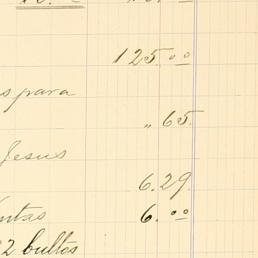 125.00
s para
" 65.
Jesus
6.29.
ntas 6.00
2 bultos